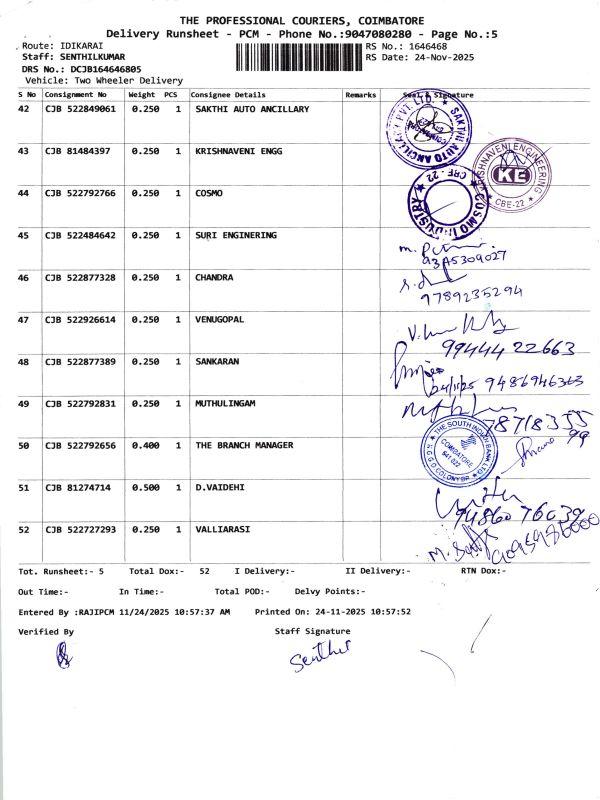 THE PROFESSIONAL COURIERS, COIMBATORE
Delivery Runsheet - PCM - Phone No.:9047080280 - Page No.:5
Route: IDIKARAI RS No.: 1646468
Staff: SENTHILKUMAR RS Date: 24-Nov-2025
DRS No.: DCJB164646805
Vehicle: Two Wheeler Delivery
S No Consignment No Weight PCS Consignee Details Remarks Seal & Signature
42 CJB 522849061 0.250 1 SAKTHI AUTO ANCILLARY
43 CJB 81484397 0.250 1 KRISHNAVENI ENGG
KRISHNAVENI ENGINEERING
KE
CBE-22
44 CJB 522792766 0.250 1 COSMO
COSMO INDUSTRY
CBE-22
45 CJB 522484642 0.250 1 SURI ENGINERING
46 CJB 522877328 0.250 1 CHANDRA
9789235294
47 CJB 522926614 0.250 1 VENUGOPAL
99444 22663
48 CJB 522877389 0.250 1 SANKARAN
24/11/25 9486946363
49 CJB 522792831 0.250 1 MUTHULINGAM
50 CJB 522792656 0.400 1 THE BRANCH MANAGER
THE SOUTH INDIAN BANK LTD
COIMBATORE
641 022
51 CJB 81274714 0.500 1 D.VAIDEHI
52 CJB 522727293 0.250 1 VALLIARASI
Tot. Runsheet:- 5 Total Dox:- 52 I Delivery:- II Delivery:- RTN Dox:-
Out Time:- In Time:- Total POD:- Delvy Points:-
Entered By :RAJIPCM 11/24/2025 10:57:37 AM Printed On: 24-11-2025 10:57:52
Verified By Staff Signature